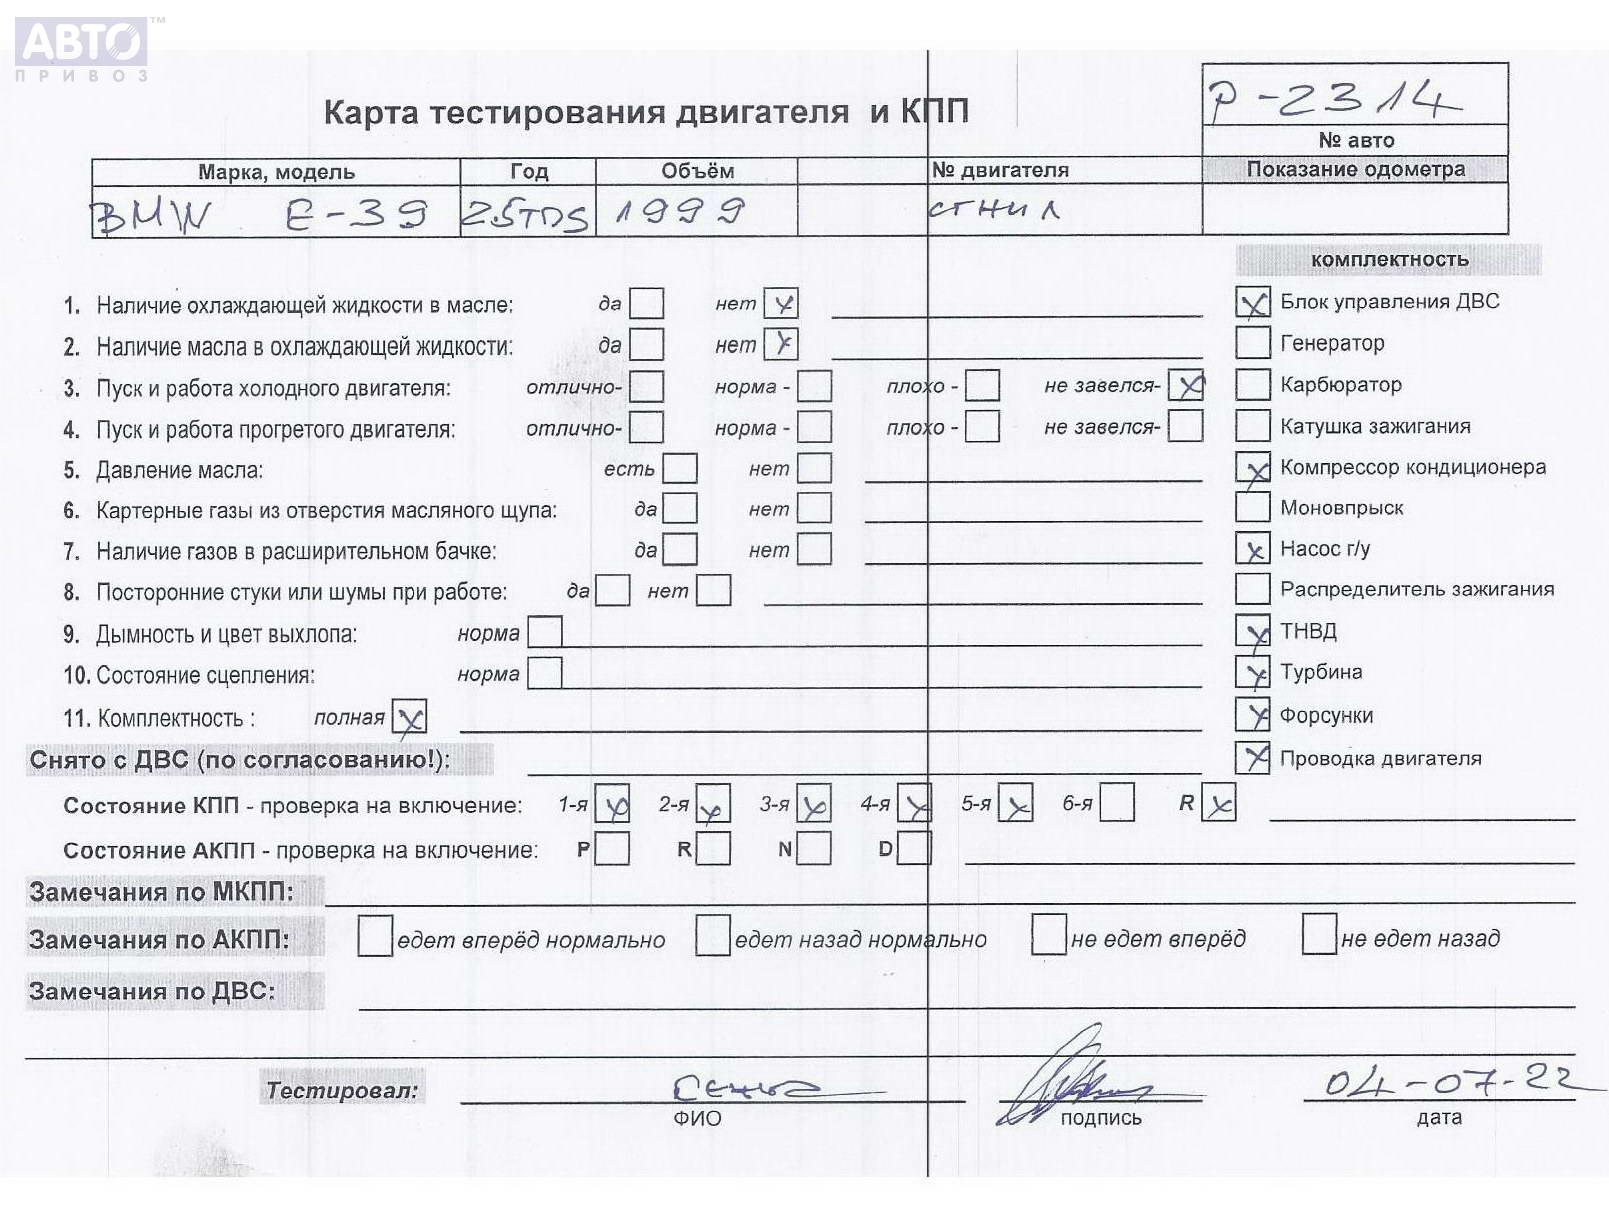 АВТО™
ПРИВОЗ
Р-2314
Карта тестирования двигателя и КПП
№ авто
Марка, модель Год Объём № двигателя Показание одометра
BMW E-39 2.5TDS 1999 сгнил
комплектность
1. Наличие охлаждающей жидкости в масле: да нет x Блок управления ДВС x
2. Наличие масла в охлаждающей жидкости: да нет x Генератор
3. Пуск и работа холодного двигателя: отлично- норма - плохо - не завелся- x Карбюратор
4. Пуск и работа прогретого двигателя: отлично- норма - плохо - не завелся- Катушка зажигания
5. Давление масла: есть нет x Компрессор кондиционера
6. Картерные газы из отверстия масляного щупа: да нет Моновпрыск
7. Наличие газов в расширительном бачке: да нет x Насос г/у
8. Посторонние стуки или шумы при работе: да нет Распределитель зажигания
9. Дымность и цвет выхлопа: норма x ТНВД
10. Состояние сцепления: норма x Турбина
11. Комплектность : полная x x Форсунки
Снято с ДВС (по согласованию!): x Проводка двигателя
Состояние КПП - проверка на включение: 1-я x 2-я x 3-я x 4-я x 5-я x 6-я R x
Состояние АКПП - проверка на включение: P R N D
Замечания по МКПП:
Замечания по АКПП: едет вперёд нормально едет назад нормально не едет вперёд не едет назад
Замечания по ДВС:
Тестировал: 04-07-22
ФИО подпись дата